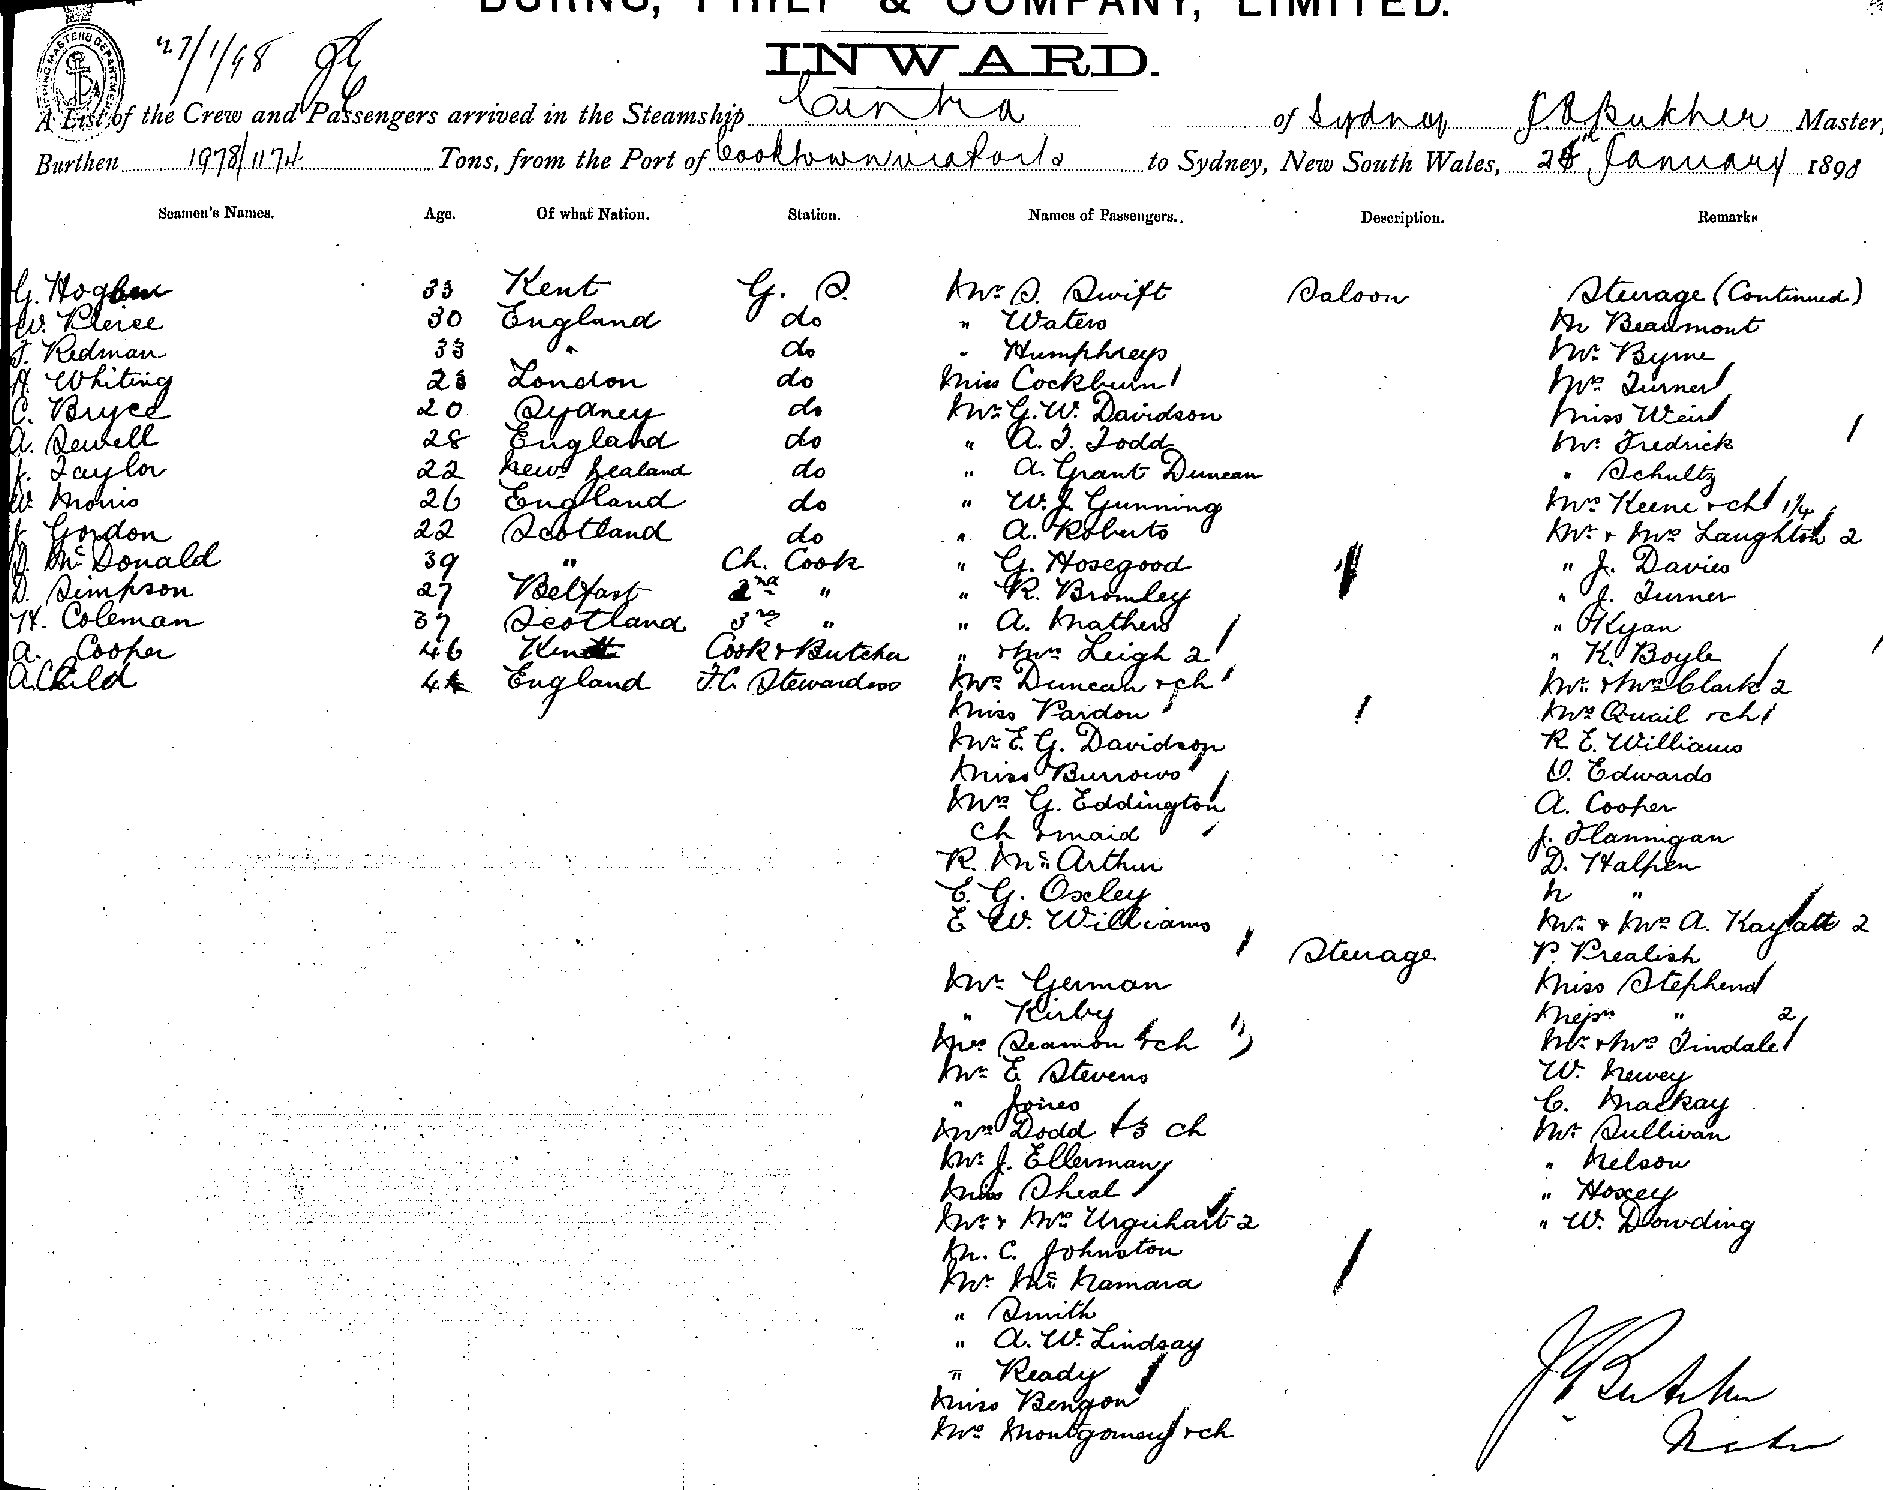 BURNS, PHILP & COMPANY, LIMITED.
INWARD.
27/1/98
A List of the Crew and Passengers arrived in the Steamship Cintra of Sydney Master,
Burthen 1978/1174 Tons, from the Port of Cooktown via Ports to Sydney, New South Wales, January 1898
Seamen's Names. Age. Of what Nation. Station. Names of Passengers. Description. Remarks
G. Hogben 33 Kent G. S. Mr S. Swift Saloon Steerage (Continued)
W. Pierce 30 England do " Waters M Beaumont
J. Redman 33 " do " Humphreys Mr Byrne
H. Whiting London do Miss Cockburn Mrs Turner
C. Bryce 20 Sydney do Mr G. W. Davidson Miss Weir
A. Sewell 28 England do " A. J. Todd Mr Fredrick
J. Taylor 22 New Zealand do " A. Grant Duncan " Schultz
W. Morris 26 England do " W. J. Gunning Mrs Keene & ch 1/4
J. Gordon 22 Scotland do " A. Roberts Mr & Mrs Laughton 2
D. McDonald 39 " Ch. Cook " G. Hosegood " J. Davies
D. Simpson 27 Belfast 2nd " " R. Bromley " J. Turner
H. Coleman 37 Scotland 3rd " " A. Mathers " Kyan
A. Cooper 46 Kent Cook & Butcher " & Mrs Leigh 2 " K. Boyle
A. Child England F.C. Stewardess Mrs Duncan & ch Mr & Mrs Clark 2
Miss Pardon Mrs Quail & ch
Mr E. G. Davidson R. E. Williams
Miss Burrows O. Edwards
Mrs G. Eddington A. Cooper
ch & maid J. Flannigan
R. McArthur D. Halpen
E. G. Oxley N "
E W. Williams Mr & Mrs A. 2
Steerage P. Prealish
Mr German Miss Stephens
" Kirby " 2
Mrs Seamon & ch Mr & Mrs Tindale
Mr E Stevens W. Newey
" Jones C. Mackay
Mrs Dodd & 3 ch Mr Sullivan
Mr J. Ellerman " Nelson
Miss Sheal " Hoxey
Mr & Mrs Urquhart 2 " W. Dowding
M. C. Johnston
Mr McNamara
" Smith
" A. W. Lindsay
" Ready
Miss Bengon
Mrs Montgomery & ch